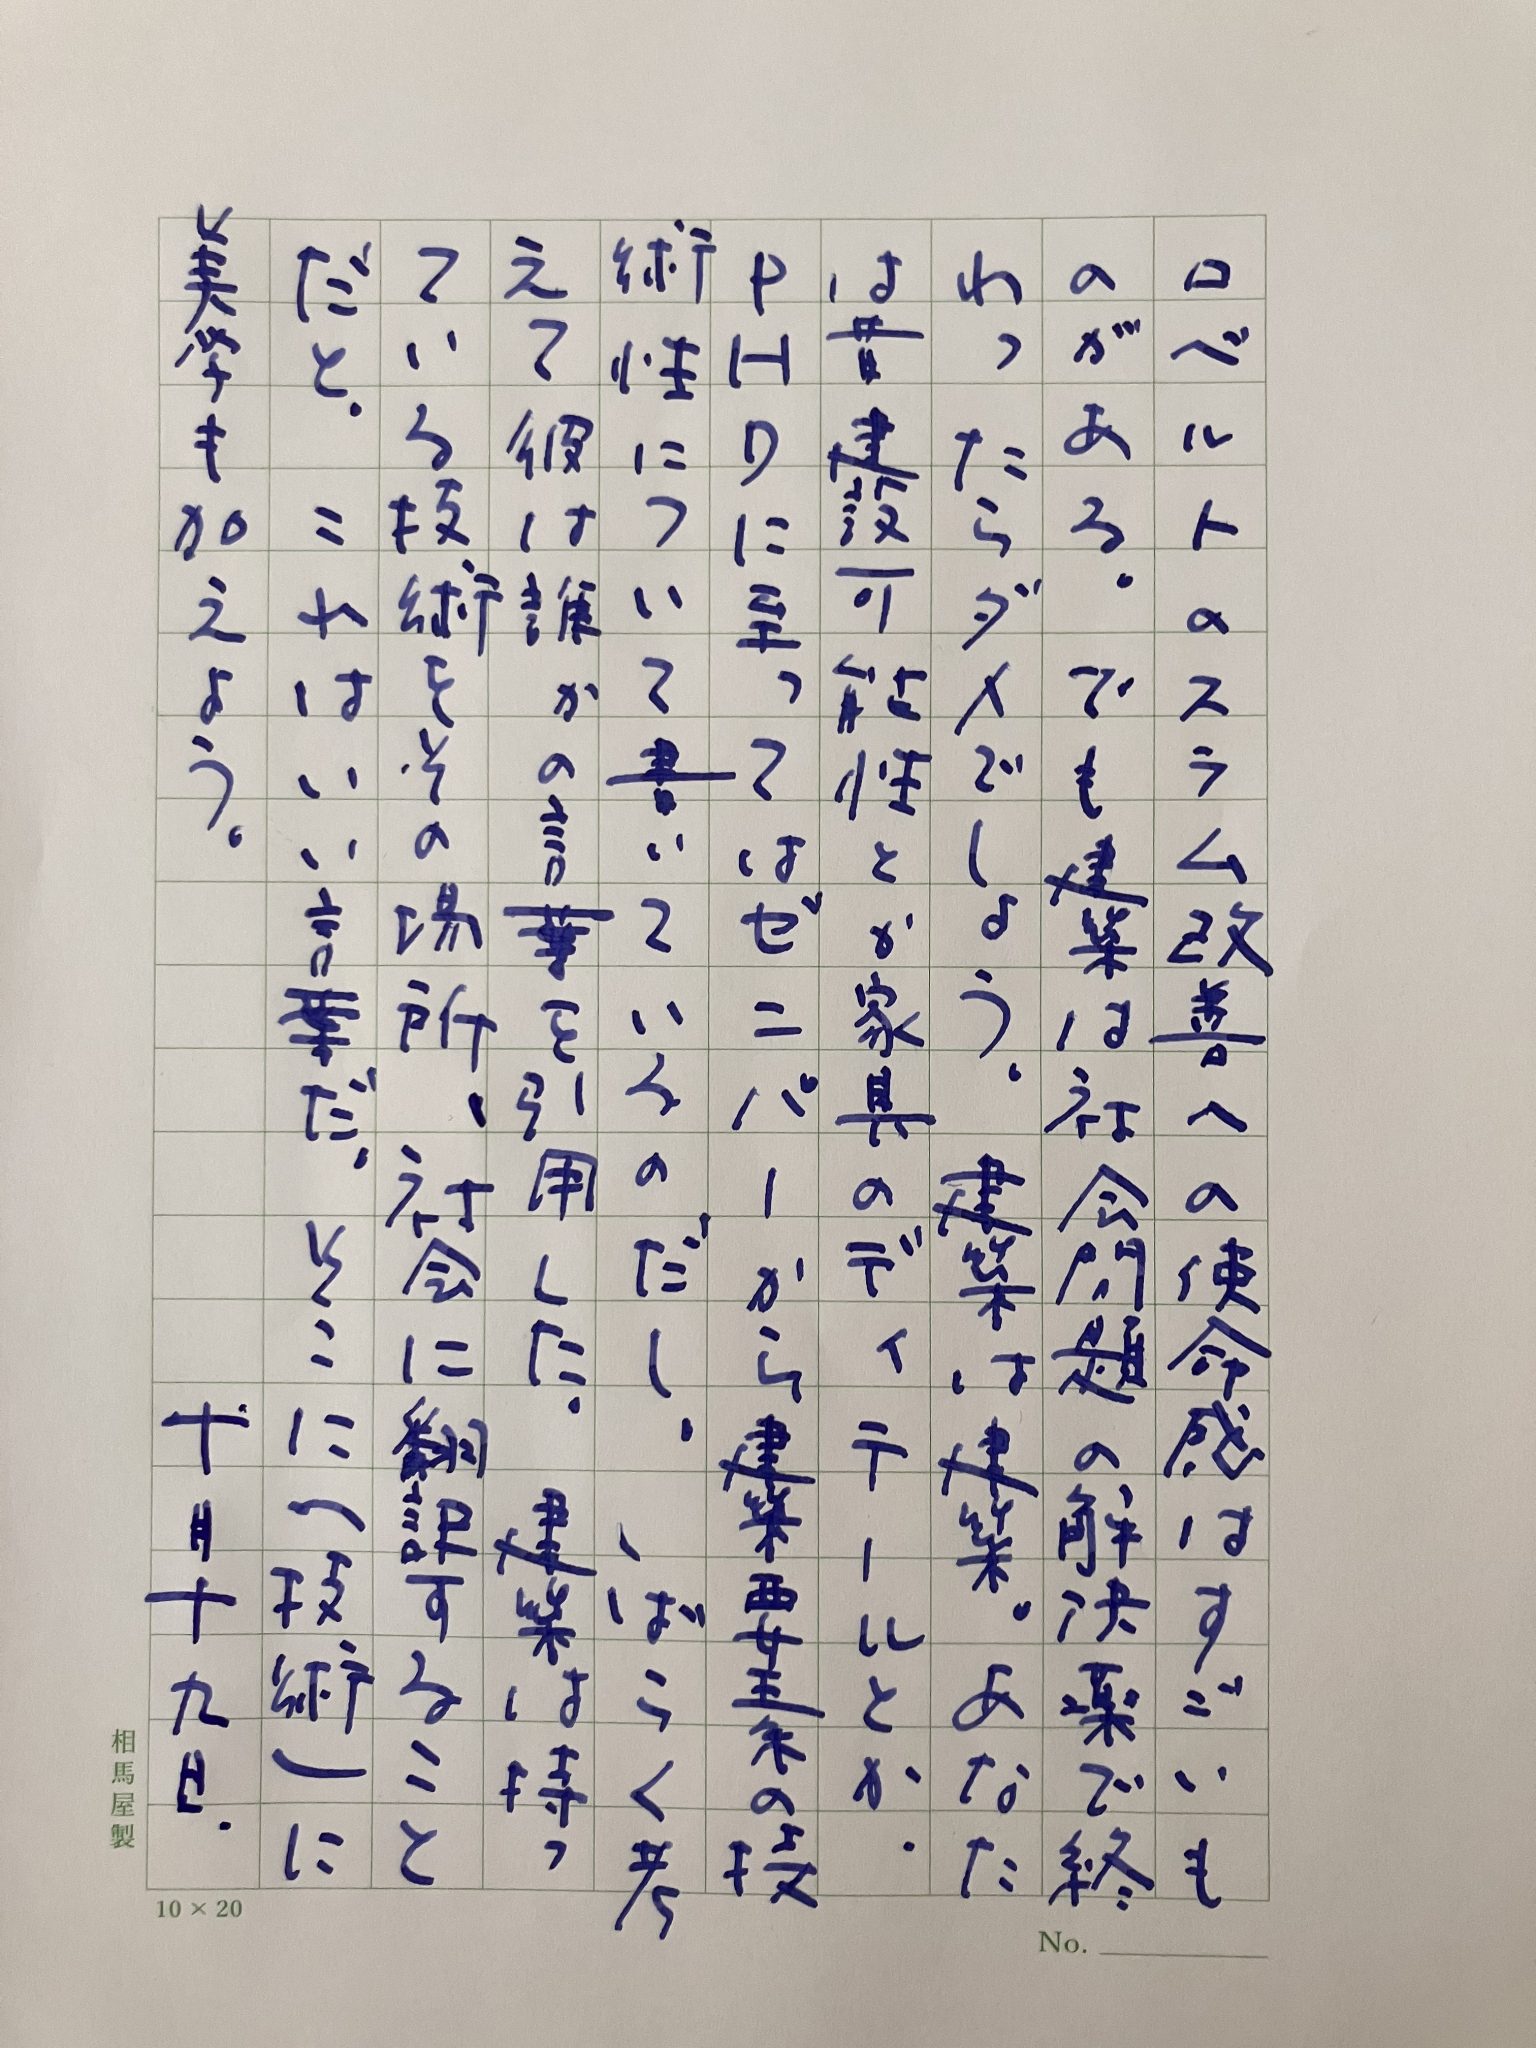 ロベルトのスラム改善への使命感はすごいも
のがある。でも建築は社会問題の解決薬で終
わったらダメでしょう。建築は建築。あなた
は昔建設可能性とか家具のディテールとか.
PHDに至ってはゼニバーから建築要素の技
術性について書いているのだし。しばらく考
えて彼は誰かの言葉を引用した。建築は持っ
ている技術をその場所、社会に翻訳すること
だと。これはいい言葉だ。そこに「技術」に
美学も加えよう。十月十九日.
相馬屋製
10 × 20
No.